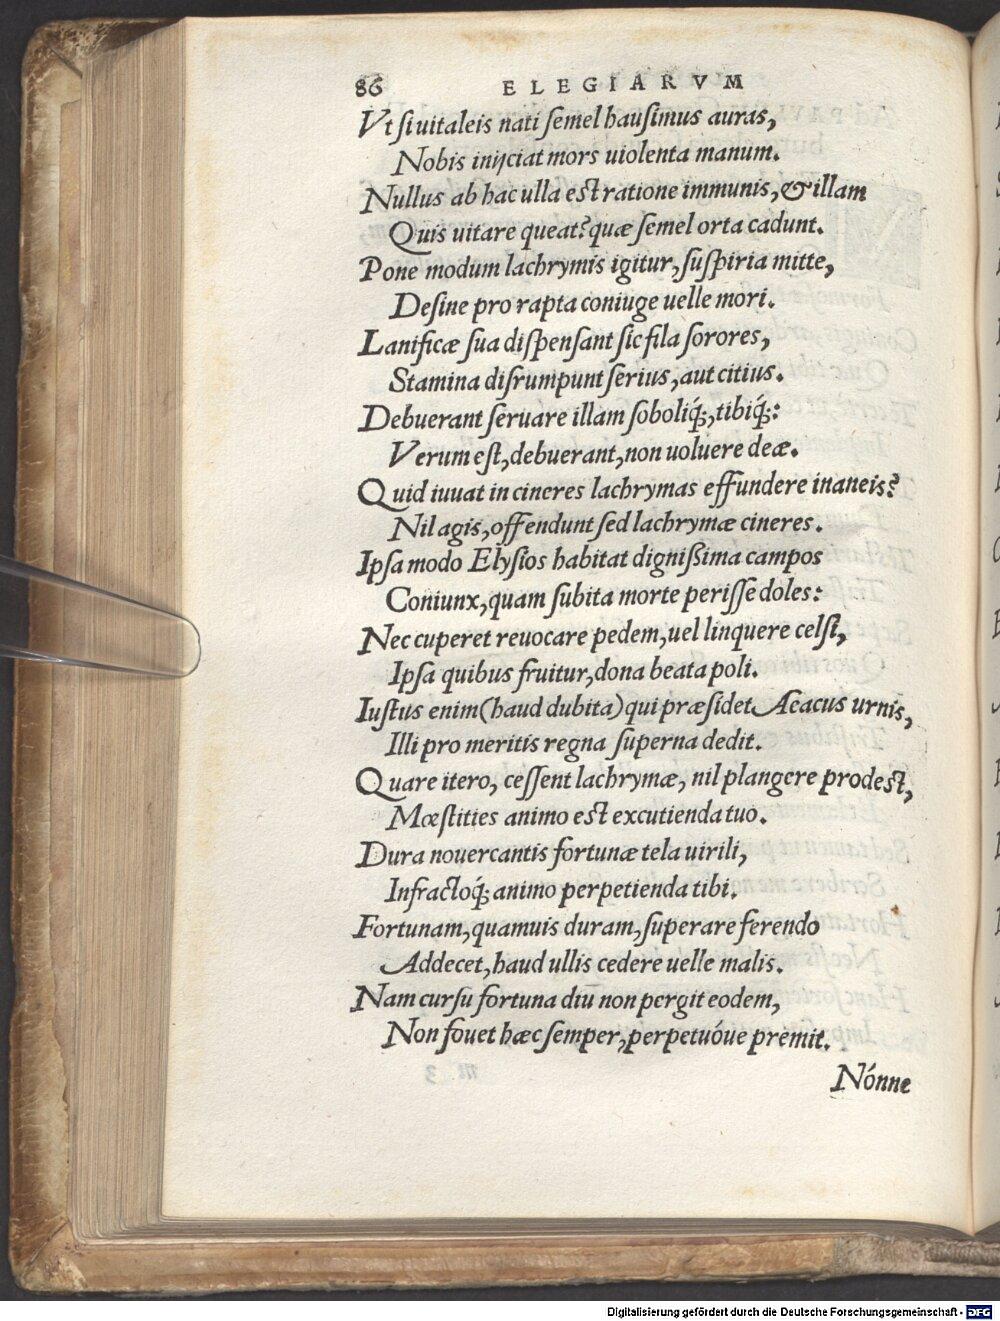 86 ELEGIARVM
Vt si uitaleis nati semel hausimus auras,
Nobis inijciat mors uiolenta manum.
Nullus ab hac ulla est ratione immunis, & illam
Quis uitare queat? quæ semel orta cadunt.
Pone modum lachrymis igitur, suspiria mitte,
Desine pro rapta coniuge uelle mori.
Lanificæ sua dispensant sic fila sorores,
Stamina disrumpunt serius, aut citius.
Debuerant seruare illam soboliq́;, tibiq́;:
Verum est, debuerant, non uoluere deæ.
Quid iuuat in cineres lachrymas effundere inaneis?
Nil agis, offendunt sed lachrymæ cineres.
Ipsa modo Elysios habitat dignißima campos
Coniunx, quam subita morte perisse doles:
Nec cuperet reuocare pedem, uel linquere celsi,
Ipsa quibus fruitur, dona beata poli.
Iustus enim (haud dubita) qui præsidet Aeacus urnis,
Illi pro meritis regna superna dedit.
Quare itero, cessent lachrymæ, nil plangere prodest,
Mœstities animo est excutienda tuo.
Dura nouercantis fortunæ tela uirili,
Infractoq́; animo perpetienda tibi.
Fortunam, quamuis duram, superare ferendo
Addecet, haud ullis cedere uelle malis.
Nam cursu fortuna diu non pergit eodem,
Non fouet hæc semper, perpetuóue premit.
Nónne
Digitalisierung gefördert durch die Deutsche Forschungsgemeinschaft - DFG